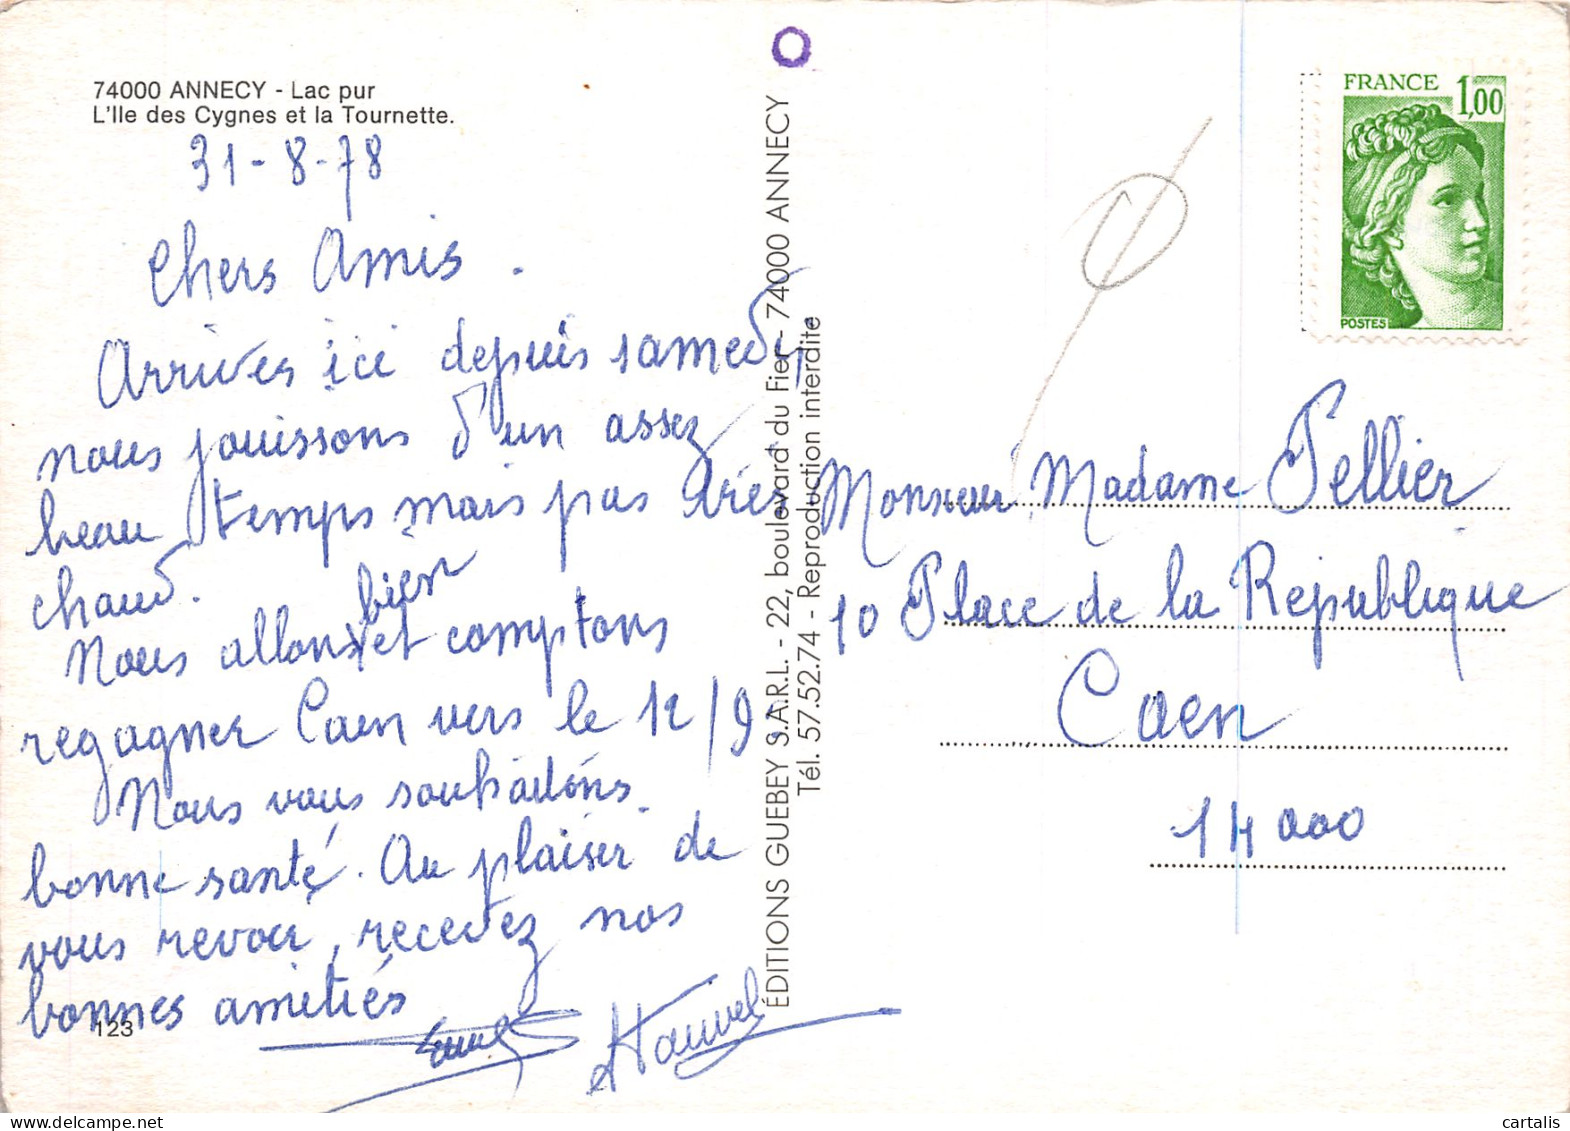 74000 ANNECY - Lac pur
L'Ile des Cygnes et la Tournette.
31-8-78
Chers Amis.
Arrives ici depuis samedi
nous jouissons d'un assez
beau temps mais pas très
chaud.
bien
Nous allons et comptons
regagner Caen vers le 12/9.
Nous vous souhaitons
bonne santé. Au plaisir de
vous revoir, recevez nos
bonnes amitiés
123
ÉDITIONS GUEBEY S.A.R.L. - 22, boulevard du Fier - 74000 ANNECY
Tél. 57.52.74 - Reproduction interdite
FRANCE 1,00
POSTES
Monsieur Madame Pellier
10 Place de la Republique
Caen
14000
cartalis
delcampe.net